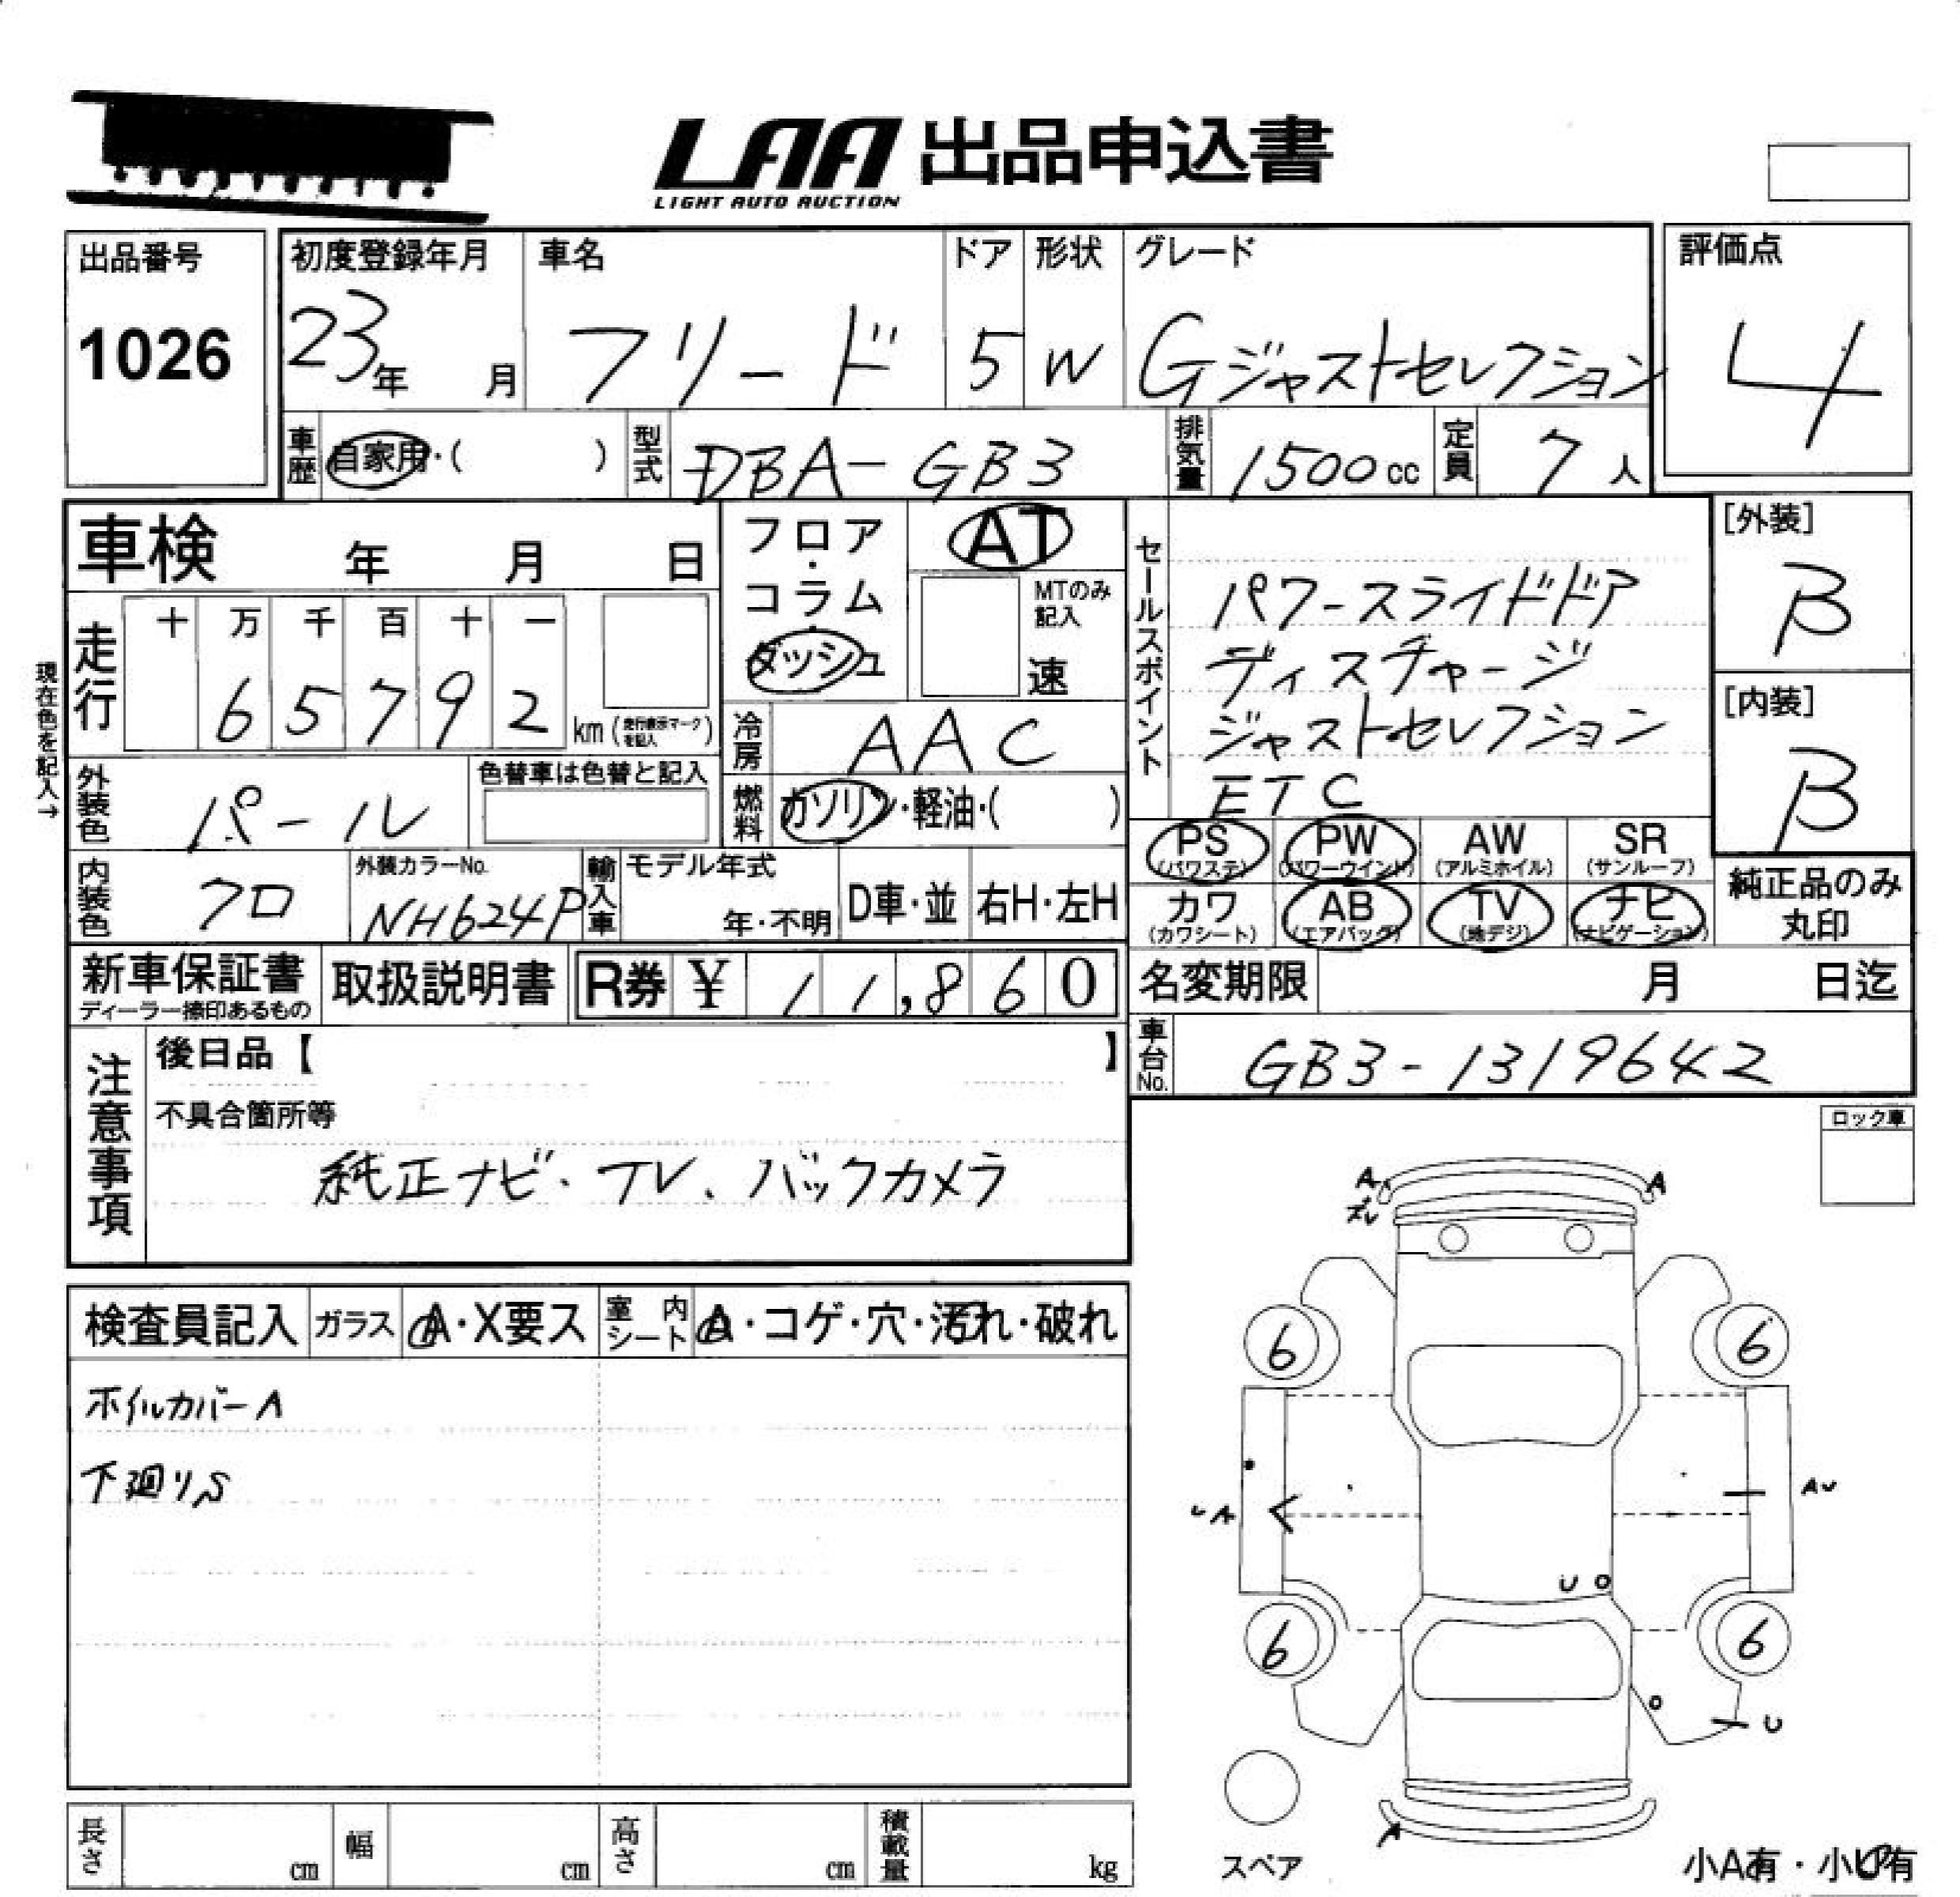 LAA 出品申込書
LIGHT AUTO AUCTION
出品番号
1026
初度登録年月
23年 月
車名
フリード
ドア
5
形状
W
グレード
Gジャストセレクション
評価点
4
車歴 自家用・( )
型式 DBA-GB3
排気量 1500cc
定員 7人
車検 年 月 日
フロア・コラム・ダッシュ
AT
MTのみ記入
速
セールスポイント
パワースライドドア
ディスチャージ
ジャストセレクション
ETC
[外装]
β
[内装]
β
現在色を記入→
走行
十 万 千 百 十 一
6 5 7 9 2 km (走行表示マークを記入)
冷房 AAC
外装色 パール
色替車は色替と記入
燃料 ガソリン・軽油・( )
PS (パワステ) PW (パワーウインド) AW (アルミホイル) SR (サンルーフ)
カワ (カワシート) AB (エアバッグ) TV (地デジ) ナビ (ナビゲーション)
純正品のみ丸印
内装色 クロ
外装カラーNo. NH624P
輸入車
モデル年式
年・不明
D車・並
右H・左H
新車保証書
ディーラー捺印あるもの
取扱説明書
R券 ¥ 11,860
名変期限 月 日迄
車台No. GB3-1319642
注意事項
後日品【 】
不具合箇所等
純正ナビ・TV、バックカメラ
ロック車
A A
ズレ
検査員記入 ガラス A・X要ス 室内シート A・コゲ・穴・汚れ・破れ
ホイルカバーA
下廻りS
6 6
UA
AU
U
6 6
U
A
スペア
小A有・小U有
長さ cm 幅 cm 高さ cm 積載量 kg